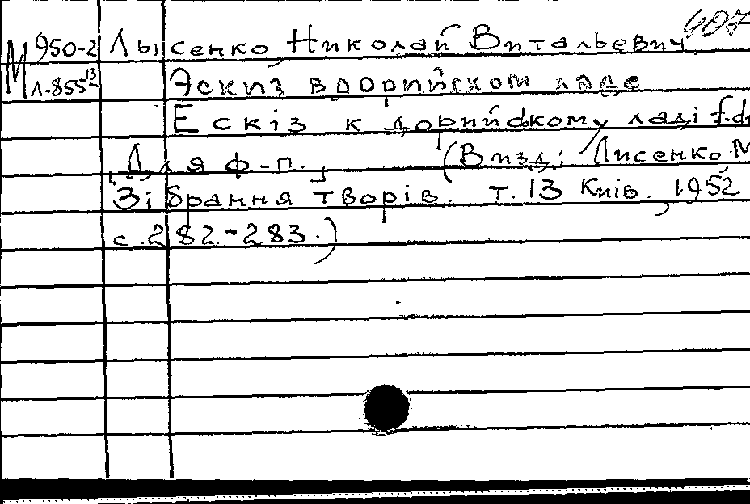 407
М 950-2 Лысенко, Николай Витальевич
Л-855 13 Эскиз в дорийском ладе
Ескіз к дорийскому ладі f.d
[Для ф-п.] (В изд: Лисенко М
Зібрання творів. т. 13 Київ, 1952
с. 282-283.)